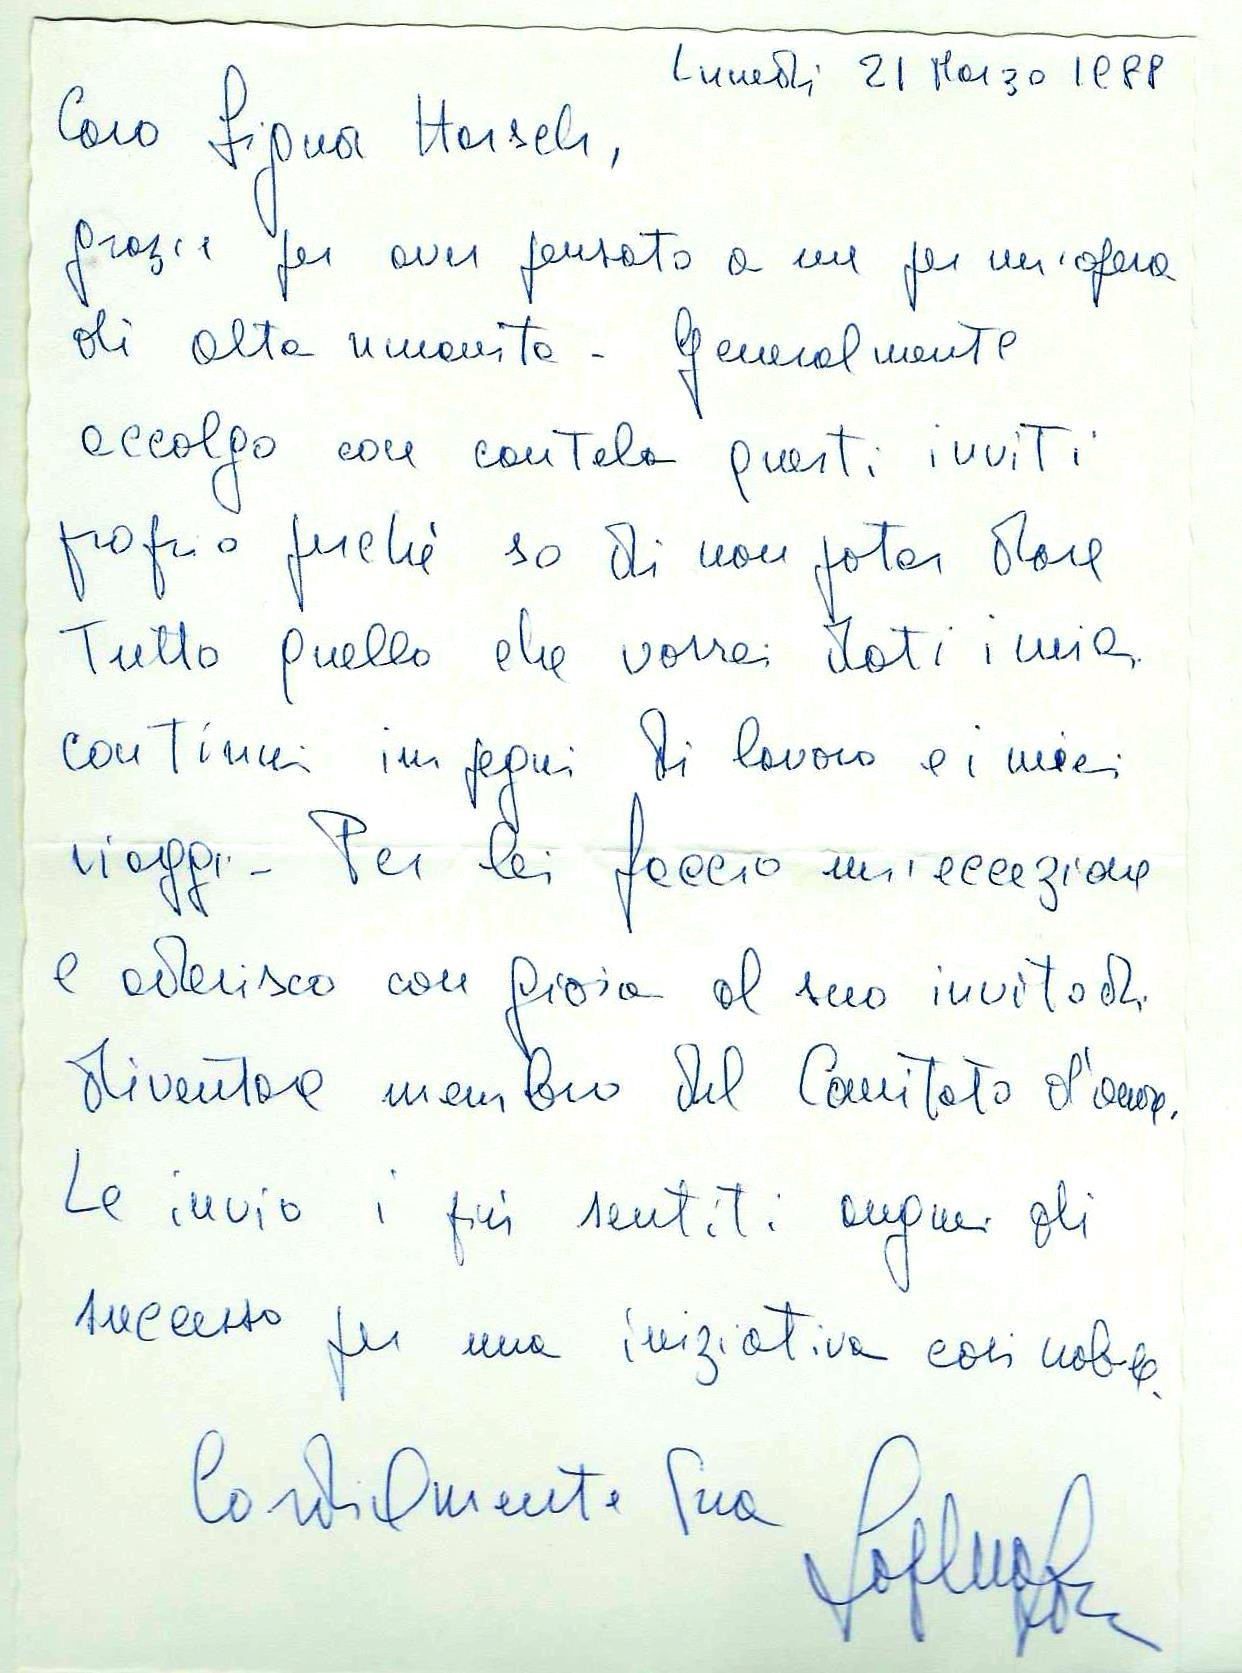 Lunedì 21 Marzo 1988
Caro Signor Horsch,
grazie per aver pensato a me per un'opera
di alta umanità - Generalmente
accolgo con cautela questi inviti
proprio perchè so di non poter dare
Tutto quello che vorrei dati i miei
continui impegni di lavoro e i miei
viaggi - Per lei faccio un'eccezione
e aderisco con gioia al suo invito di
diventare membro del Comitato d'onore.
Le invio i più sentiti auguri di
successo per una iniziativa così nobile.
Cordialmente Sua